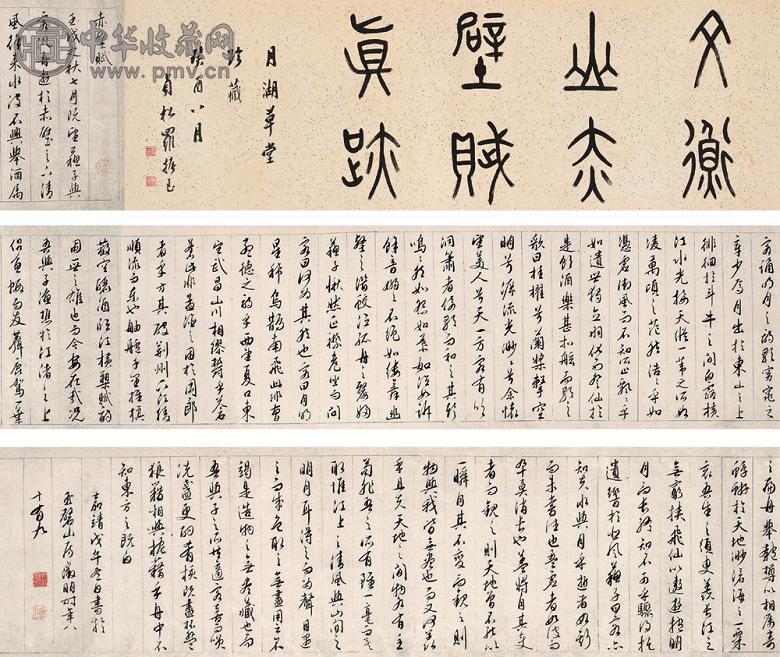 文衡
山赤
壁賦
真跡
月湖草堂
珍藏
癸酉八月
貞松羅振玉
赤壁賦
壬戌之秋七月既望蘇子與
客泛舟遊於赤壁之下清
風徐來水波不興舉酒屬
中华收藏网
www.pmv.cn
客誦明月之詩歌窈窕之
章少焉月出於東山之上
徘徊於斗牛之間白露橫
江水光接天縱一葦之所如
凌萬頃之茫然浩浩乎如
憑虛御風而不知所止飄飄乎
如遺世獨立羽化而登仙於
是飲酒樂甚扣舷而歌之
歌曰桂櫂兮蘭槳擊空
明兮泝流光渺渺兮余懷
望美人兮天一方客有吹
洞簫者倚歌而和之其聲
嗚嗚然如怨如慕如泣如訴
餘音嫋嫋不絕如縷舞幽
壑之潛蛟泣孤舟之嫠婦
蘇子愀然正襟危坐而問
客曰何為其然也客曰月明
星稀烏鵲南飛此非曹
孟德之詩乎西望夏口東
望武昌山川相繆鬱乎蒼
蒼此非孟德之困於周郎
者乎方其破荊州下江陵
順流而東也舳艫千里旌旗
蔽空釃酒臨江橫槊賦詩
固一世之雄也而今安在哉況
吾與子漁樵於江渚之上
侶魚蝦而友麋鹿駕一葉
之扁舟舉匏樽以相屬寄
蜉蝣於天地渺滄海之一粟
哀吾生之須臾羨長江之
無窮挾飛仙以遨遊抱明
月而長終知不可乎驟得托
遺響於悲風蘇子曰客亦
知夫水與月乎逝者如斯
而未嘗往也盈虛者如彼而
卒莫消長也蓋將自其變
者而觀之則天地曾不能以
一瞬自其不變而觀之則
物與我皆無盡也而又何羨
乎且夫天地之間物各有主
苟非吾之所有雖一毫而莫
取惟江上之清風與山間之
明月耳得之而為聲目遇
之而成色取之無盡用之不
竭是造物之無盡藏也而
吾與子之所共適客喜而笑
洗盞更酌肴核既盡杯盤
狼藉相與枕藉乎舟中不
知東方之既白
嘉靖戊午冬日書於
玉磬山房徵明時年八
十有九